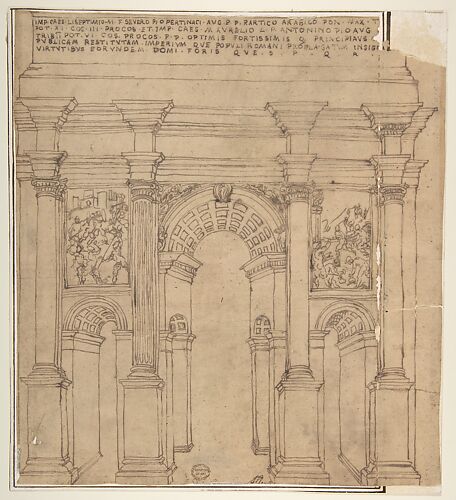 IMP. CAES. L. SEPTIMIO. M. F. SEVERO. PIO PERTINACI. AVG. P. P. PARTICO ARABICO PON. MAX. T
POT. XI. COC. III. PROCOS. ET. IMP. CAES. M. AVRELIO. L. F. ANTONINO. PIO AVG
TRIB POT. VI. COS. PROCOS. P. P. OPTIMIS FORTISSIMIS Q. PRINCIPIAVS
PVBLICAM RESTITVTAM. IMPERIVM QVE POPVLI ROMANI PROPLAGATVM INSIGN
VIRTVTIBVS EORVNDEM. DOMI. FORIS QVE. S. P. Q. R